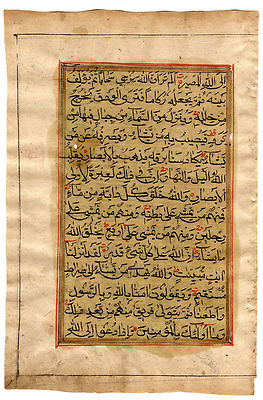 الى الله المصير الم تر ان الله يزجي سحابا ثم يؤلف
بينه ثم يجعله ركاما فترى الودق يخرج
من خلاله وينزل من السماء من جبال فيها من
برد فيصيب به من يشاء ويصرفه عن من
يشاء يكاد سنا برقه يذهب بالابصار يقلب
الله الليل والنهار ان في ذلك لعبرة لاولي
الابصار والله خلق كل دابة من ماء
فمنهم من يمشي على بطنه ومنهم من يمشي على
رجلين ومنهم من يمشي على اربع يخلق الله
ما يشاء ان الله على كل شيء قدير لقد انزلنا
ايت مبينت والله يهدي من يشاء الى صراط
مستقيم ويقولون امنا بالله وبالرسول
واطعنا ثم يتولى فريق منهم من بعد ذلك
وما اولئك بالمؤمنين واذا دعوا الى الله